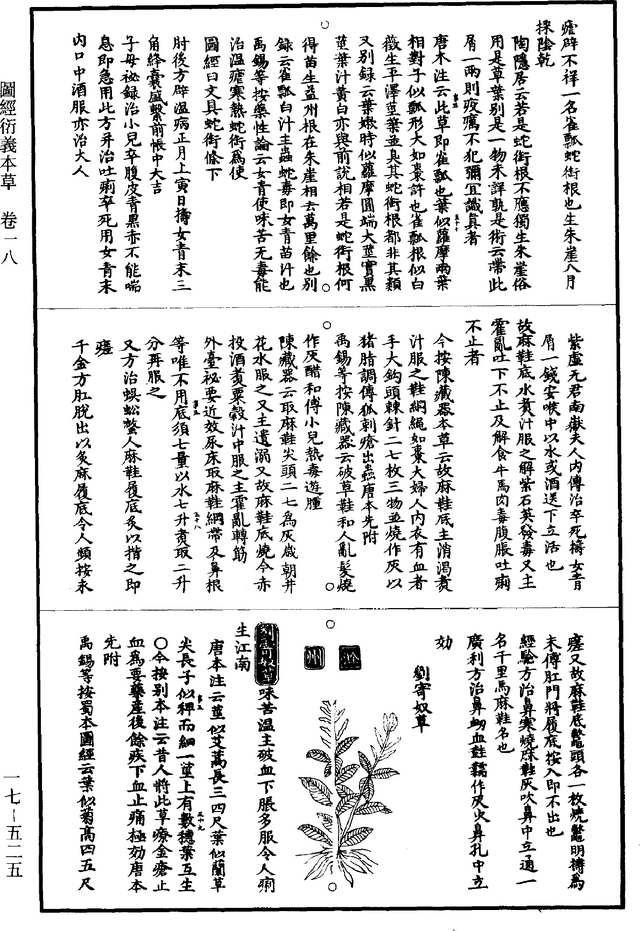 瘧辟不祥一名雀瓢蛇銜根也生朱崖八月
採陰乾
陶隱居云若是蛇銜根不應獨生朱崖俗
用是草葉別是一物未詳孰是術云帶此
屑一兩則疫癘不犯彌宜識真者
唐本注云此草即雀瓢也葉似蘿摩兩葉
相對子似瓢形大如棗許也雀瓢根似白
薇生平澤莖葉並臭其蛇銜根都非其類
又別錄云葉嫩時似蘿摩圓端大莖實黑
莖葉汁黃白亦與前說相若是蛇銜根何
得苗生益州根在朱崖相去萬里餘也別
錄云雀瓢白汁主蟲蛇毒即女青苗汁也
禹錫等按藥性論云女青使味苦无毒能
治溫瘧寒熱蛇銜為使
圖經曰文具蛇銜條下
肘後方辟溫病正月上寅日擣女青末三
角絳囊盛繫前帳中大吉
子母祕錄治小兒卒腹皮青黑赤不能喘
息即急用此方并治吐痢卒死用女青末
內口中酒服亦治大人
紫虛元君南嶽夫人內傳治卒死擣女青
屑一錢安喉中以水或酒送下立活也
故麻鞋底水煮汁服之解紫石英發毒又主
霍亂吐下不止及解食牛馬肉毒腹脹吐痢
不止者
今按陳藏器本草云故麻鞋底主消渴煮
汁服之鞋網繩如棗大婦人內衣有血者
手大鉤頭棘針二七枚三物並燒作灰以
豬脂調傅狐刺瘡出蟲唐本先附
禹錫等按陳藏器云破草鞋和人亂髮燒
作灰醋和傅小兒熱毒遊腫
陳藏器云取麻鞋尖頭二七為灰歲朝井
花水服之又主遺溺又故麻鞋底燒令赤
投酒煮粟穀汁中服之主霍亂轉筋
外臺祕要近效尿床取麻鞋網帶及鼻根
等唯不用底須七量以水七升煮取二升
分再服之
又方治蜈蚣螫人麻鞋履底炙以揩之即
瘥
千金方肛脫出以炙麻履底令人頻按末
瘥又故麻鞋底鱉頭各一枚燒鱉明擣為
末傅肛門將履底按入即不出也
經驗方治鼻塞燒麻鞋灰吹鼻中立通一
名千里馬麻鞋名也
廣利方治鼻衂血鞋𩍇作灰吹鼻孔中立
効
劉寄奴草
滁州
劉寄奴草味苦溫主破血下脹多服令人痢
生江南
唐本注云莖似艾蒿長三四尺葉似蘭草
尖長子似稗而細一莖上有數穗葉互生
○今按別本注云昔人將此草療金瘡止
血為要藥產後餘疾下血止痛極効唐本
先附
禹錫等按蜀本圖經云葉似菊高四五尺
圖經衍義本草　卷一八
一七—五二五